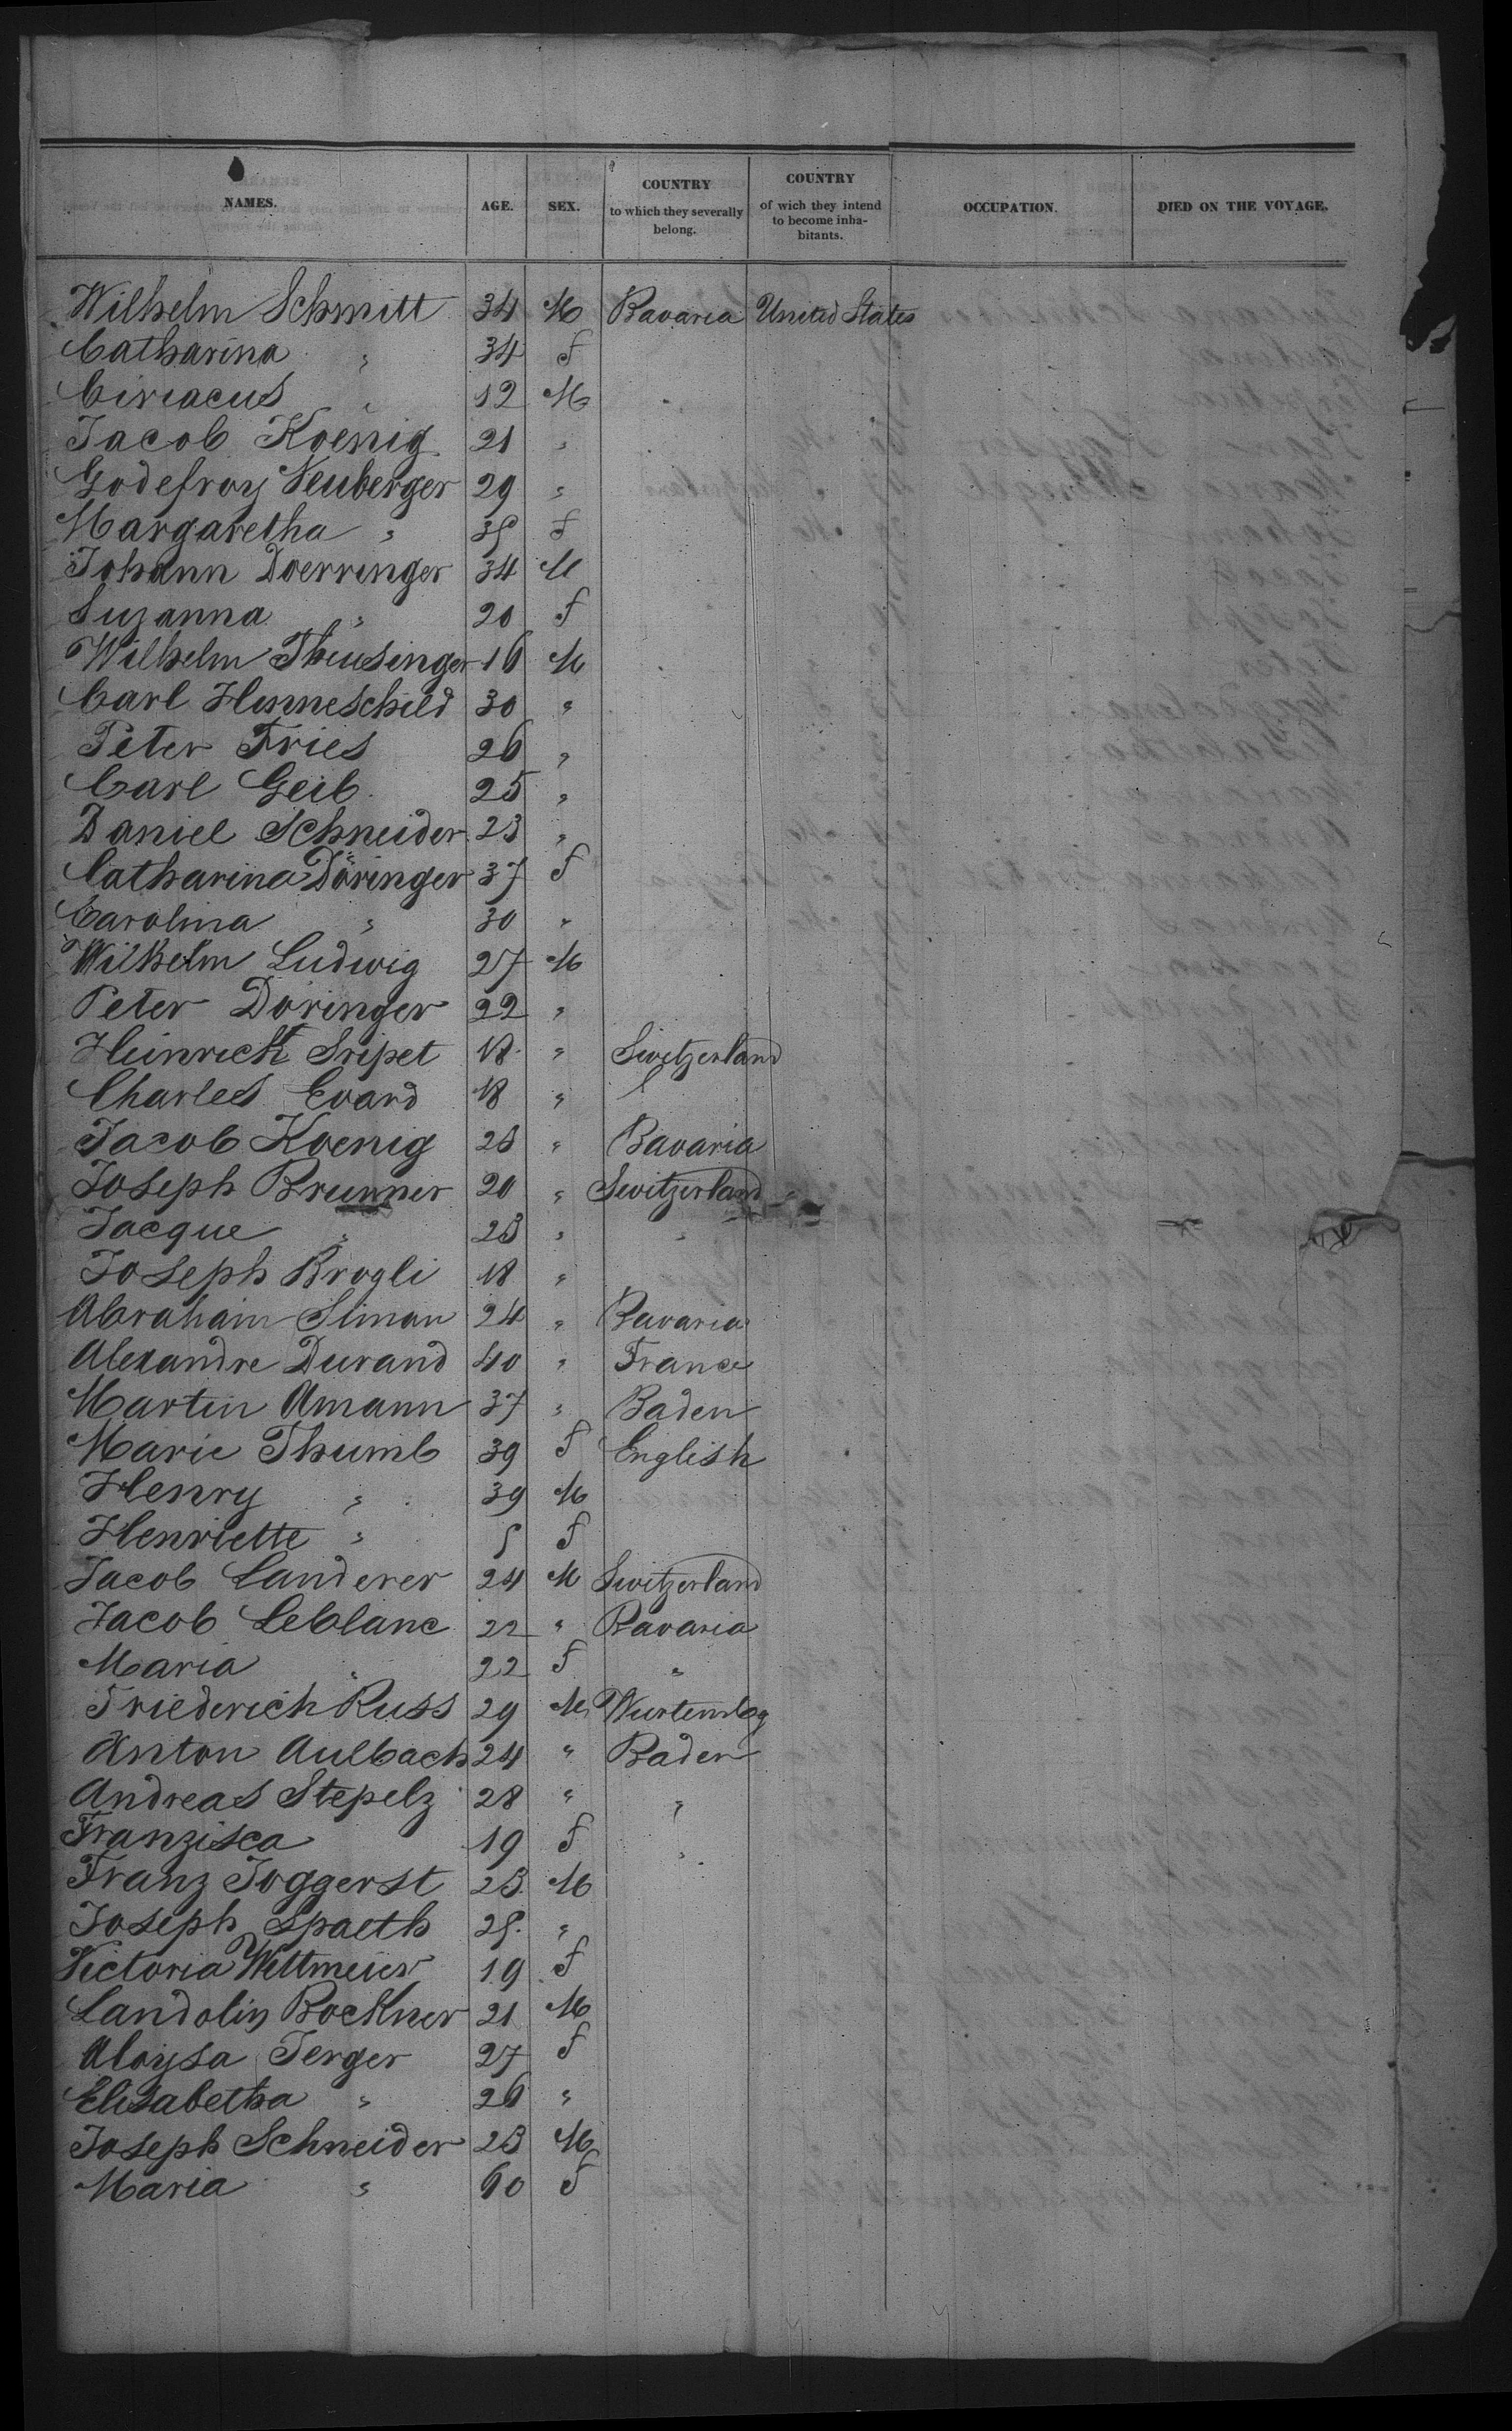 NAMES. AGE. SEX. COUNTRY to which they severally belong. COUNTRY of wich they intend to become inhabitants. OCCUPATION. DIED ON THE VOYAGE.
Wilhelm Schmitt 34 M Bavaria United States
Catharina " 34 f
Ciriacus " 12 M
Jacob Koenig 21 "
Godefroy Neuberger 29 "
Margaretha " 35 f
Johann Doerringer 34 M
Suzanna " 20 f
Wilhelm Theusinger 16 M
Carl Hunneschild 30 "
Peter Fries 26 "
Carl Geib 25 "
Daniel Schneider 23 "
Catharina Döringer 37 f
Carolina " 30 "
Wilhelm Ludwig 27 M
Peter Döringer 22 "
Heinrich Sripet 18 " Switzerland
Charles Evard 18 "
Jacob Koenig 23 " Bavaria
Joseph Brunner 20 " Switzerland
Jacque " 23 " "
Joseph Brogli 18 "
Abraham Siman 24 " Bavaria
Alexandre Durand 40 " France
Martin Amann 37 " Baden
Marie Thumb 39 f English
Henry " 39 M
Henriette " 5 f
Jacob Landerer 24 M Switzerland
Jacob Leblanc 22 " Bavaria
Maria " 22 f "
Friederich Russ 29 M Wurtembg
Anton Aulbach 24 " Baden
Andreas Stepelz 28 " "
Franzisca 19 f "
Franz Joggerst 23 M
Joseph Spaeth 25 "
Victoria Wettmeier 19 f
Landolin Bockner 21 M
Aloysa Jerger 27 f
Elisabetha " 26 "
Joseph Schneider 23 M
Maria " 60 f